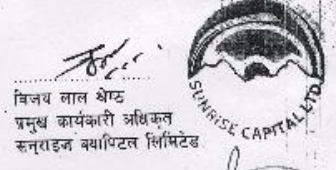 विजय लाल श्रेष्ठ
प्रमुख कार्यकारी अधिकृत
सनराइज क्यापिटल लिमिटेड
SUNRISE CAPITAL LTD